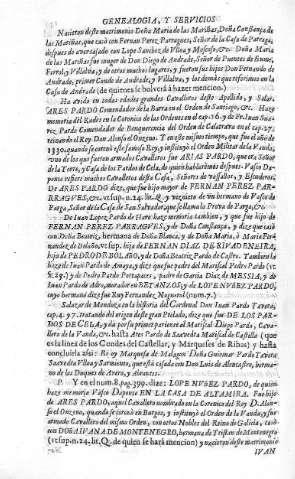 GENEALOGIA, Y SERVICIOS
Nacieron deste matrimonio Doña Maria de las Mariñas, Doña Constança de
las Mariñas, que casó con Fernan Perez Parragues, Señor de la Casa de Parraga,
despues de aver casado con Lope Sanchez de Ulloa y Moscoso, &c. Doña Maria
de las Mariñas fue muger de Don Diego de Andrade, Señor de Puentes de Eume,
Ferrol, y Villalva, y de otros muchos lugares, y fueron sus hijos Don Fernando de
Andrade, primer Conde de Andrade, y Villalva, y los demás que refiriremos en la
Casa de Andrade (de quienes se bolverá à hazer mencion.)
Ha avido en todas edades grandes Cavalleros deste Apellido, y Salazar
ARES PARDO Comendador de la Barra en el Orden de Santiago, &c. Haze
memoria del Rades en la Coronica de las Ordenes en el cap. 36. y de Fr. Juan
Pardo Comendador de Bonquerencia del Orden de Calatrava en el cap. 27.
reinando el Rey Don Alonso el Onzeno. Y en esse mismo tiempo, que fue el año de
1330. quando se coronò este señor Rey, y instituyò el Orden Militar de la Vanda,
uno de los que fueron armados Cavalleros fue ARIAS PARDO, que es, Señor
de la Torre, y Casa de los Pardos de Cela, de quien hablarémos despues.
refiere muchos Cavalleros desta Casa, Señores de vassallos, y
De ARES PARDO dize, que fue hijo mayor de FERNAN PEREZ PAR-
RAGUES, &c. ut sup. n. 24. lit. R. y viznieto de un hermano de Vasco de
Parga, Señor de la Casa de San Salvador que llaman la Pirova de Parga, &c.
De Juan Lopez Pardo de Haro haze memoria tambien, y que fue hijo de
FERNAN PEREZ PARRAGUES, y de Doña Constança, y dize que casó
con Doña Beatriz, hermana de Doña Blanca, y de Doña Maria, ò Maria Fer-
nandez de Bolaño, ut sup. hija de FERNAN DIAZ DE RIVADENEIRA,
hijo de PEDRO DE BOLAÑO, y de Doña Beatriz Pardo de Castro. Tambien ha
bla de Juan Pardo de Aranga, y dize que fue padre del Marisçal Pedro Pardo (ut
y de Pedro Pardo Portugues, padre de Garcia Diaz de MESSIA, y de
Juan Pardo de Adro, morador en BETANZOS; y de LOPE NUÑEZ PARDO,
cuyo hermano dize fue Ruy Fernandez, Noguerol (num. 7.)
Salazar de Mendoza, en la historia del Cardenal Don Juan Pardo Tavera,
cap. 4. 7. tratando del origen deste gran Prelado, dize que fue DE LOS PAR-
DOS DE CELA, y dà por su primer pariente al Marisçal Diego Parda, Cavallero
de la Vanda, &c. hasta Ares Pardo de Saavedra Marisçal de Castilla (que
es la linea de los Condes del Castellar, y Marqueses de Ribas) y hasta
concluirla assi: Es oy Marquesa de Malagon Doña Guiomar Pardo Tavera
Saavedra Ulloa y Sarmiento, que està casada con Don Luis de Alencastre, herma-
no de los Duques de Avero, y Abrantes.
Y en el num. 8. pag. 399. dize: LOPE NUÑEZ PARDO, de quien
haze memoria Vasco Deponte EN LA CASA DE ALTAMIRA. Fue hijo
de ARES PARDO, aquel Cavallero nombrado en la Coronica del Rey D. Alon-
so el Onzeno, quando se coronò en Burgos, y instituyò el Orden de la Vanda, y fue
armado Cavallero del mismo Orden, con otros Nobles del Reino de Galicia, casò
con DOÑA JUANA DE MONTENEGRO, hermana de Tristan de Montenegro
(ut sup. n. 24. lit. Q. de quien se hará mencion) y nacieron deste matrimonio
IVAN